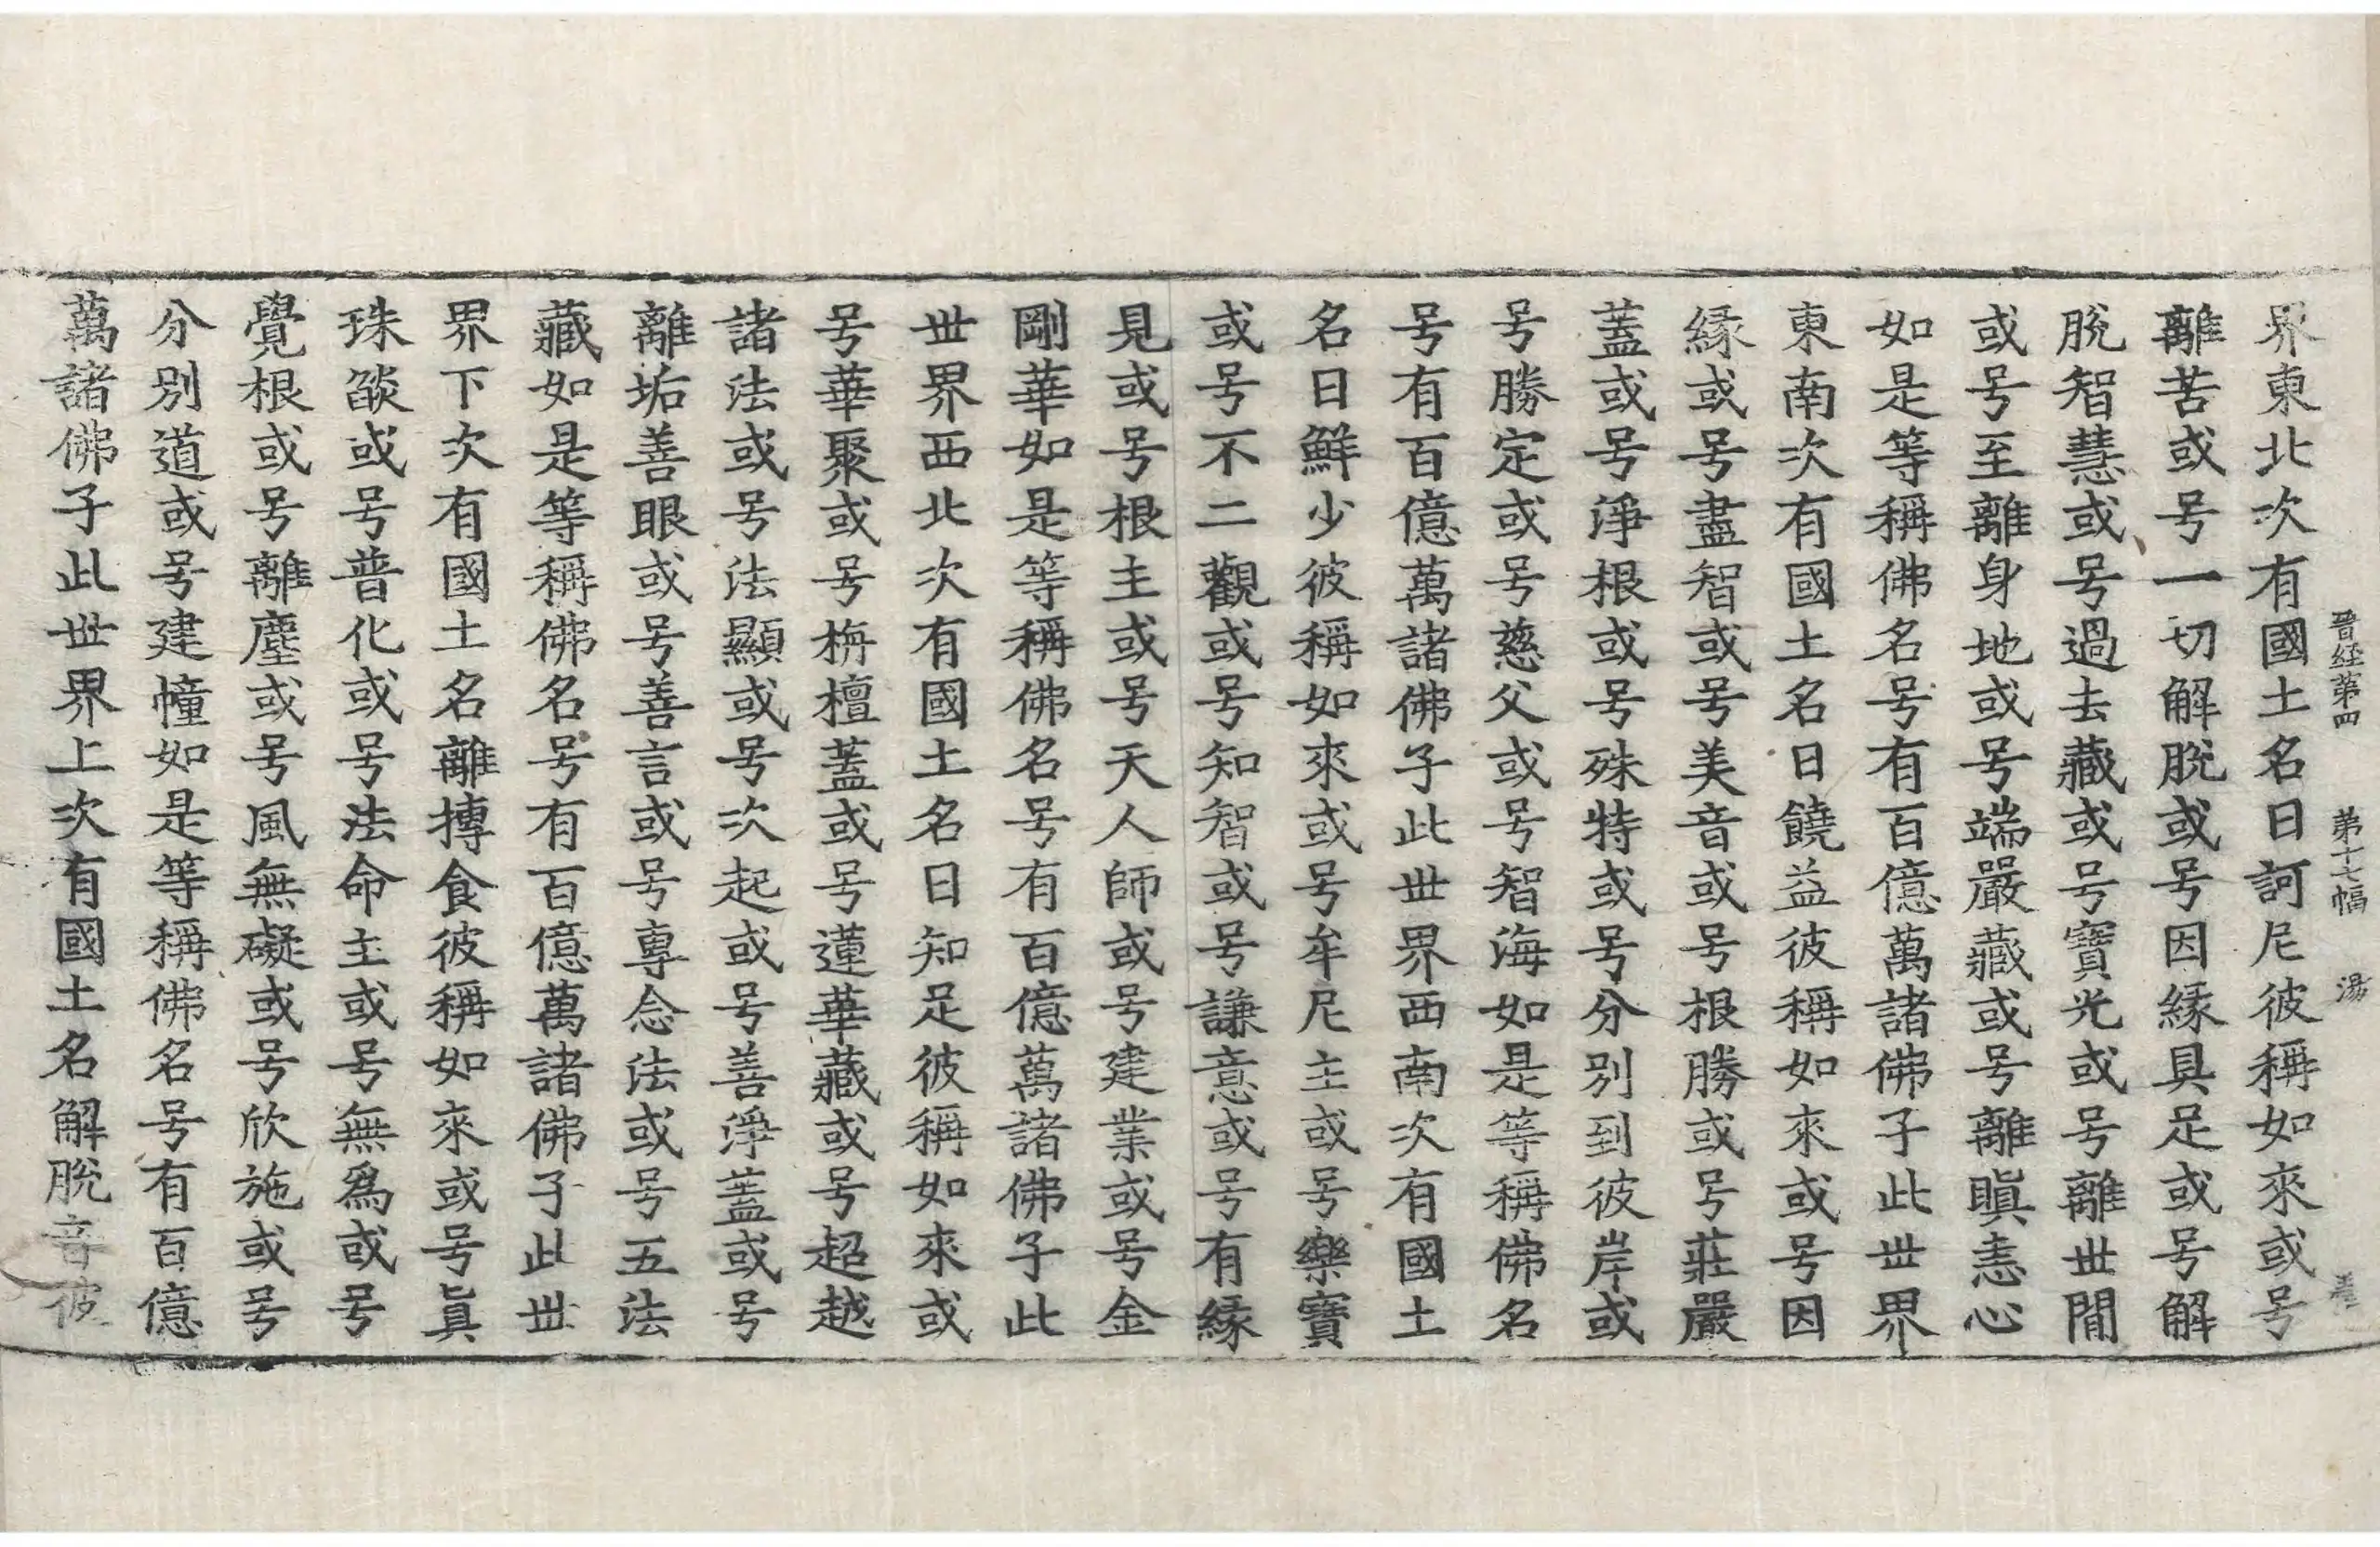 晉経第四 第十七幅 湯
界東北次有國土名曰訶尼彼稱如來或号
離苦或号一切解脫或号因縁具足或号解
脫智慧或号過去藏或号寶光或号離世間
或号至離身地或号端嚴藏或号離瞋恚心
如是等稱佛名号有百億萬諸佛子此世界
東南次有國土名曰饒益彼稱如來或号因
縁或号盡智或号美音或号根勝或号莊嚴
蓋或号淨根或号殊特或号分別到彼岸或
号勝定或号慈父或号智海如是等稱佛名
号有百億萬諸佛子此世界西南次有國土
名曰鮮少彼稱如來或号牟尼主或号樂寶
或号不二觀或号知智或号謙意或号有縁
見或号根主或号天人師或号建業或号金
剛華如是等稱佛名号有百億萬諸佛子此
世界西北次有國土名曰知足彼稱如來或
号華聚或号栴檀蓋或号蓮華藏或号超越
諸法或号法顯或号次起或号善淨蓋或号
離垢善眼或号善言或号專念法或号五法
藏如是等稱佛名号有百億萬諸佛子此世
界下次有國土名離摶食彼稱如來或号眞
珠燄或号普化或号法命主或号無爲或号
覺根或号離塵或号風無礙或号欣施或号
分別道或号建幢如是等稱佛名号有百億
萬諸佛子此世界上次有國土名解脫音彼